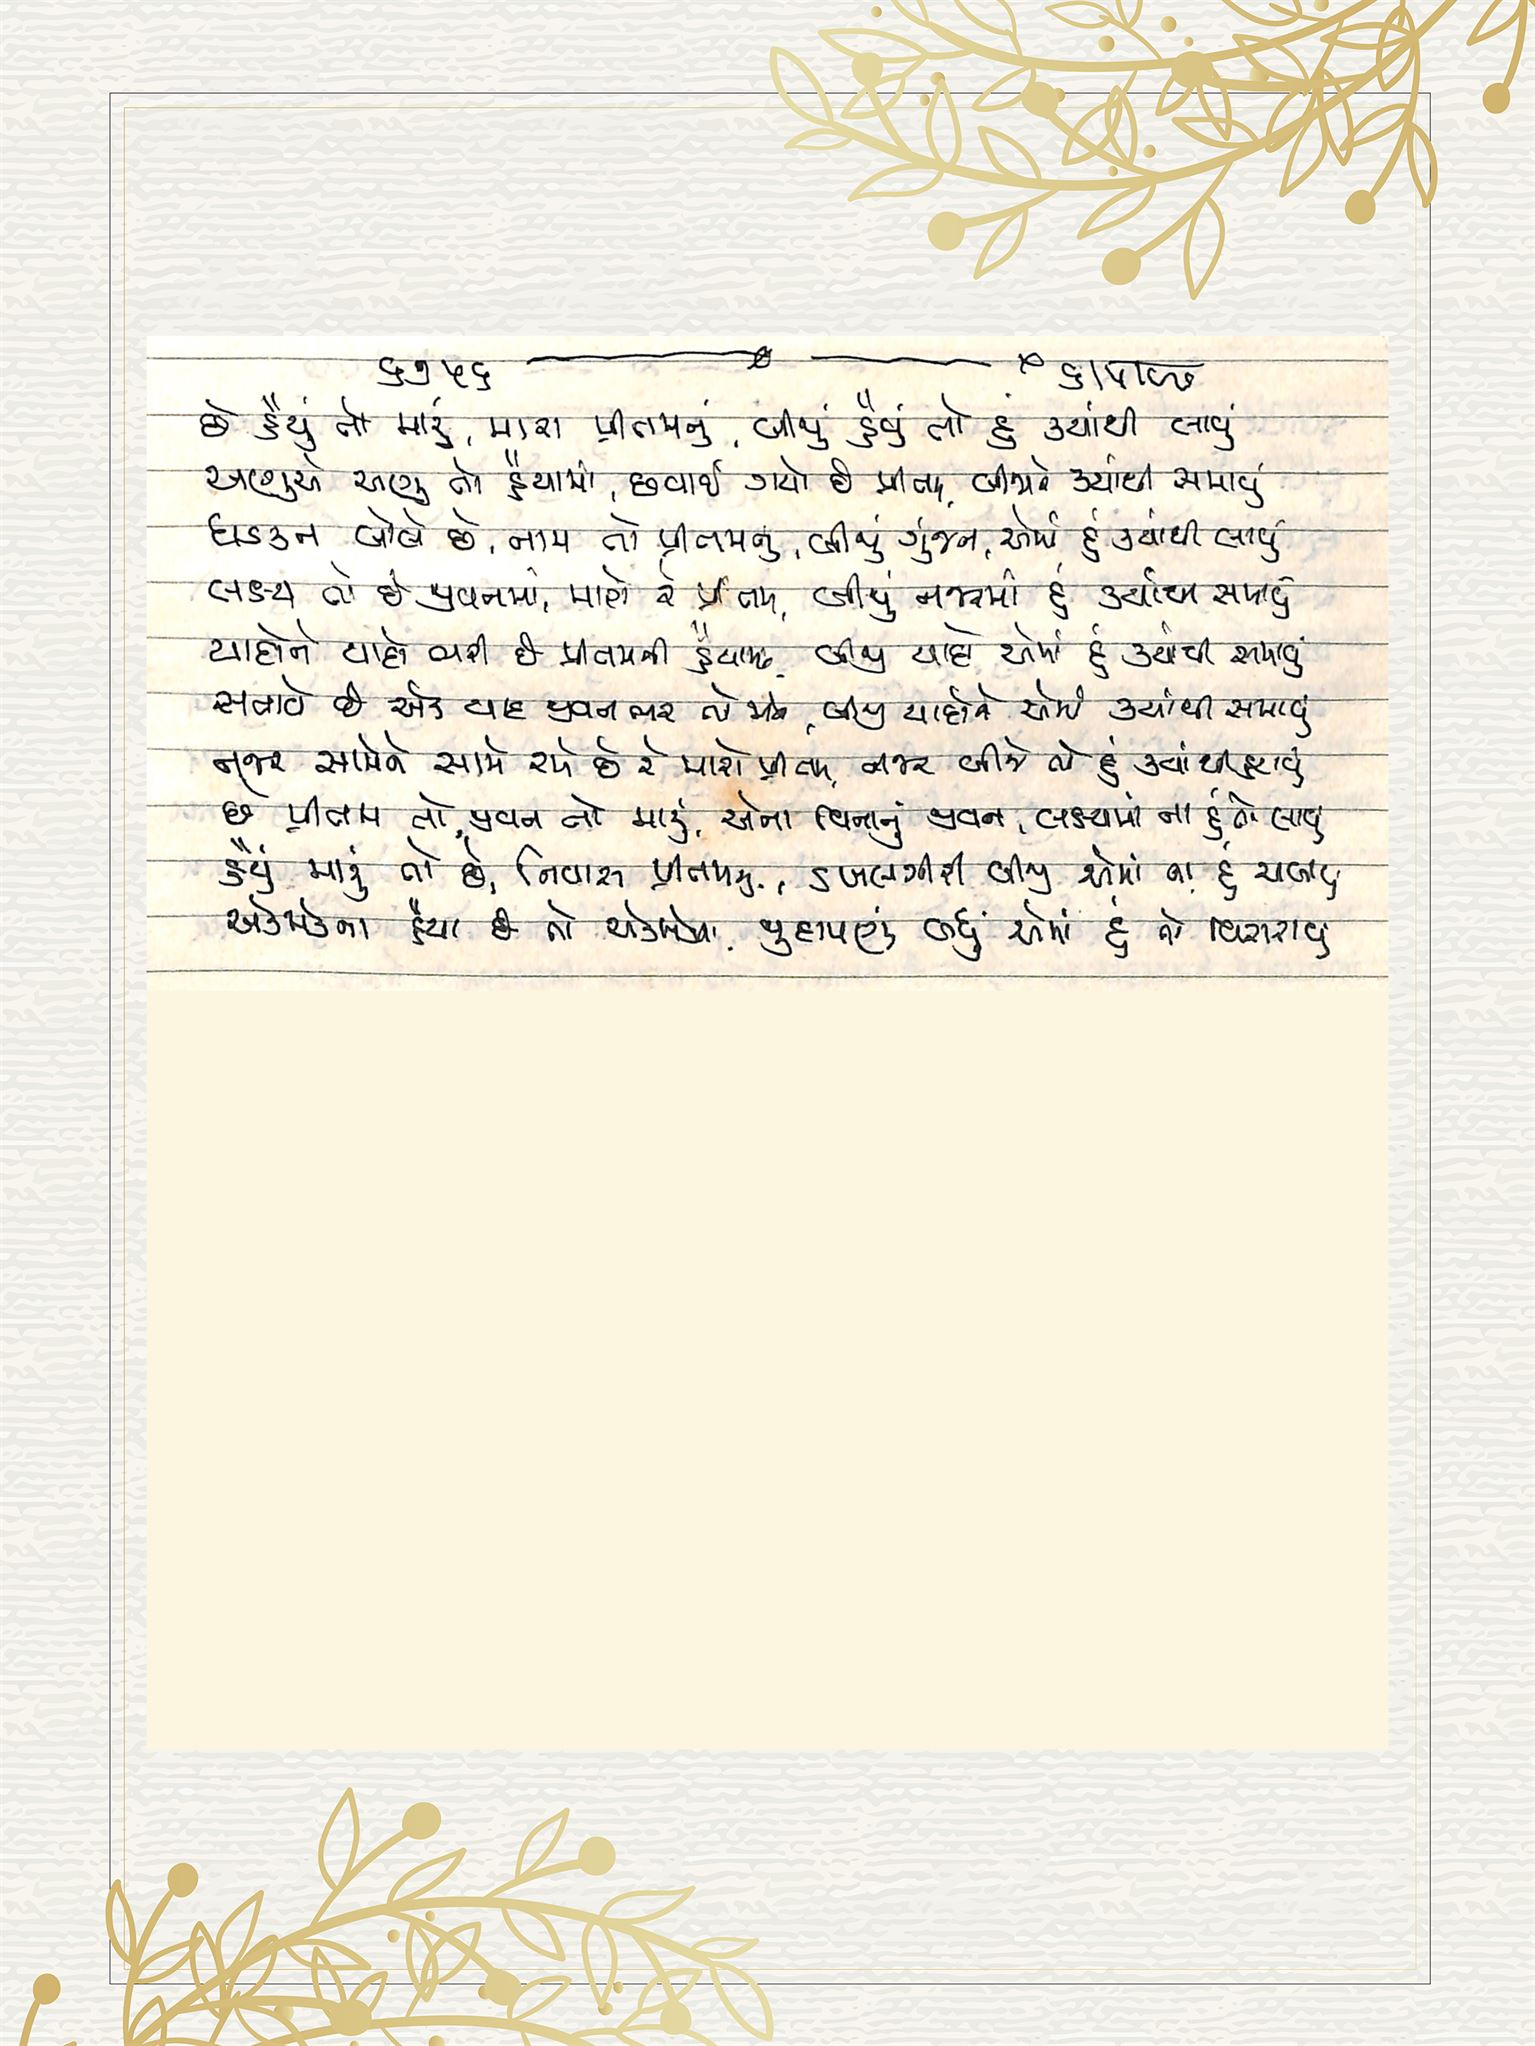 ૬૭૫૬ ૬/૫/૯૭
છે હૈયું તો મારું, મારા પ્રીતમનું, બીજું હૈયું તો હું ક્યાંથી લાવું
અણુએ અણુ તો હૈયામાં, છવાઈ ગયો છે પ્રીતમ, બીજાને ક્યાંથી સમાવું
ધડકન બોલે છે, નામ તો પ્રીતમનું, બીજું ગુંજન, એમાં હું ક્યાંથી લાવું
લક્ષ્ય તો છે જીવનમાં, મારો રે પ્રીતમ, બીજું નજરમાં હું ક્યાંથી સમાવું
યાદોને યાદો ભરી છે પ્રીતમની હૈયામાં, બીજી યાદો એમાં હું ક્યાંથી સમાવું
સતાવે છે એક યાદ જીવનભર તો મને, બીજી યાદોને એમાં ક્યાંથી સમાવું
નજર સામેને સામે રમે છે રે મારો પ્રીતમ, નજર બીજે તો હું ક્યાંથી
છે પ્રીતમ તો, જીવન તો મારું, એના વિનાનું જીવન, લક્ષ્યમાં ના હું તો લાવું
હૈયું મારું તો છે, નિવાસ પ્રીતમનું, દખલગીરી બીજી એમાં ના હું ચલાવું
એકમેકના હૈયા છે તો એકમેકમાં, જુદાપણું બધું એમાં હું તો વિસરાવું